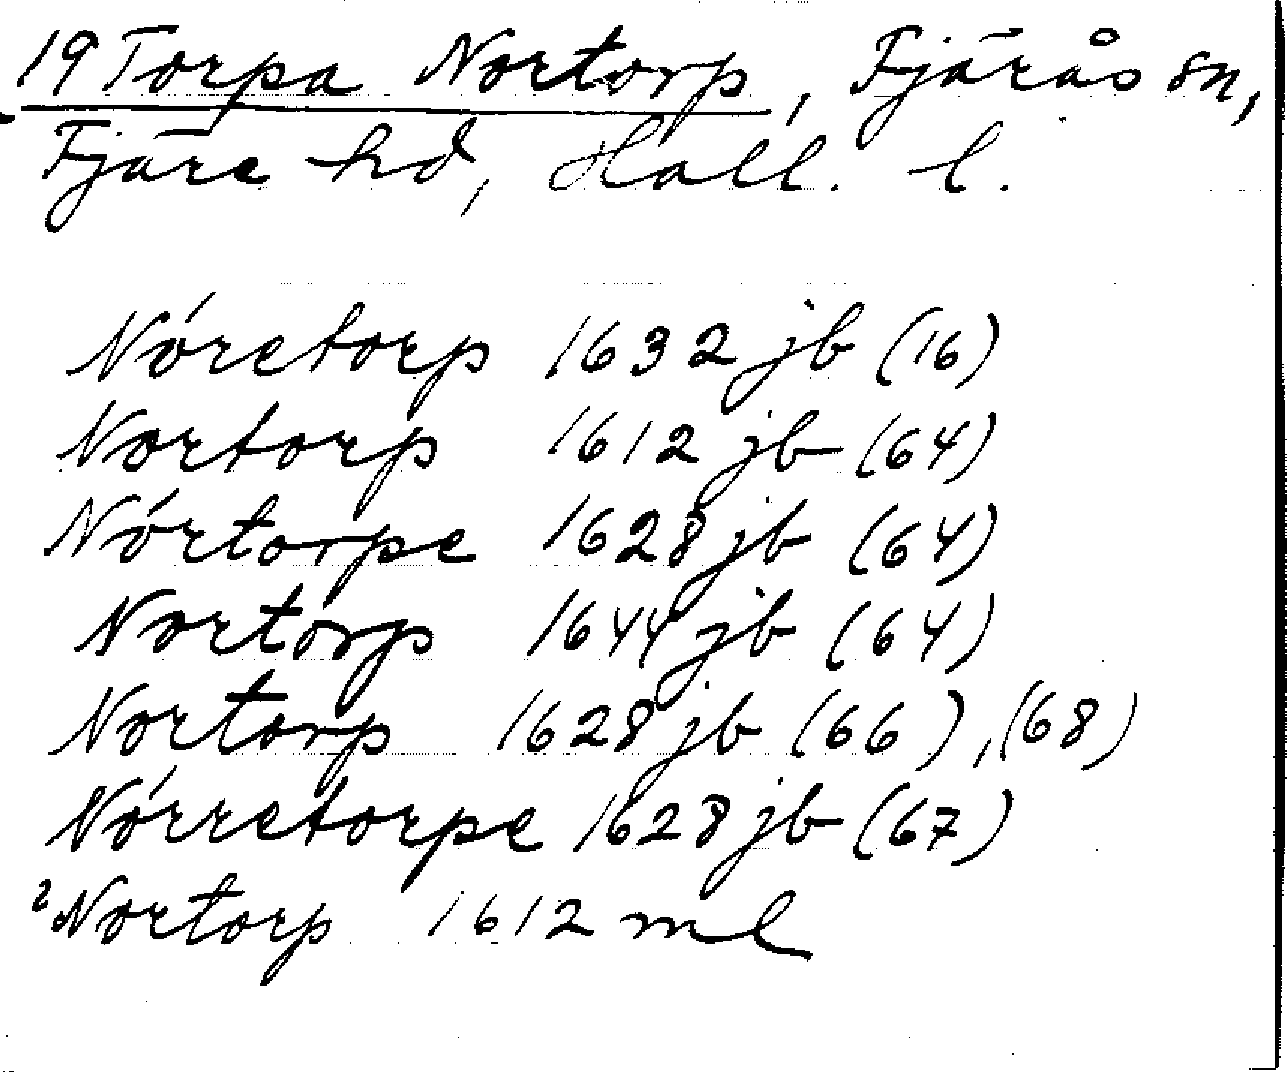 19 Torpa Nortorp, Fjärås sn,
Fjäre hd, Hall. l.
Nóretorp 1632 jb (16)
Nortorp 1612 jb (64)
Nórtorpe 1628 jb (64)
Nortorp 1644 jb (64)
Nortorp 1628 jb (66), (68)
Nórretorpe 1628 jb (67)
²Nortorp 1612 ml